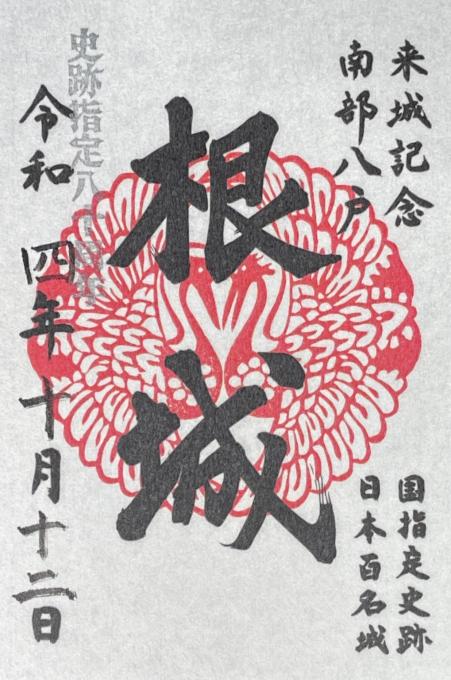 来城記念
南部八戸
国指定史跡
日本百名城
根城
史跡指定八十周年
令和四年十月十二日